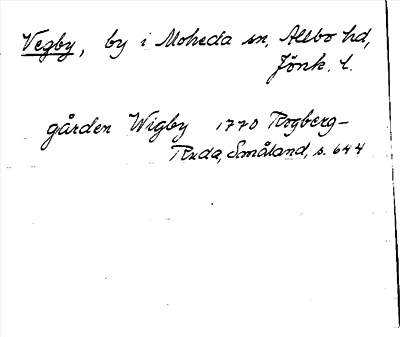 Vegby, by i Moheda sn, Allbo hd,
Jönk. l.
gården Wigby 1770 Rogberg-
Ruda, Småland, s. 644